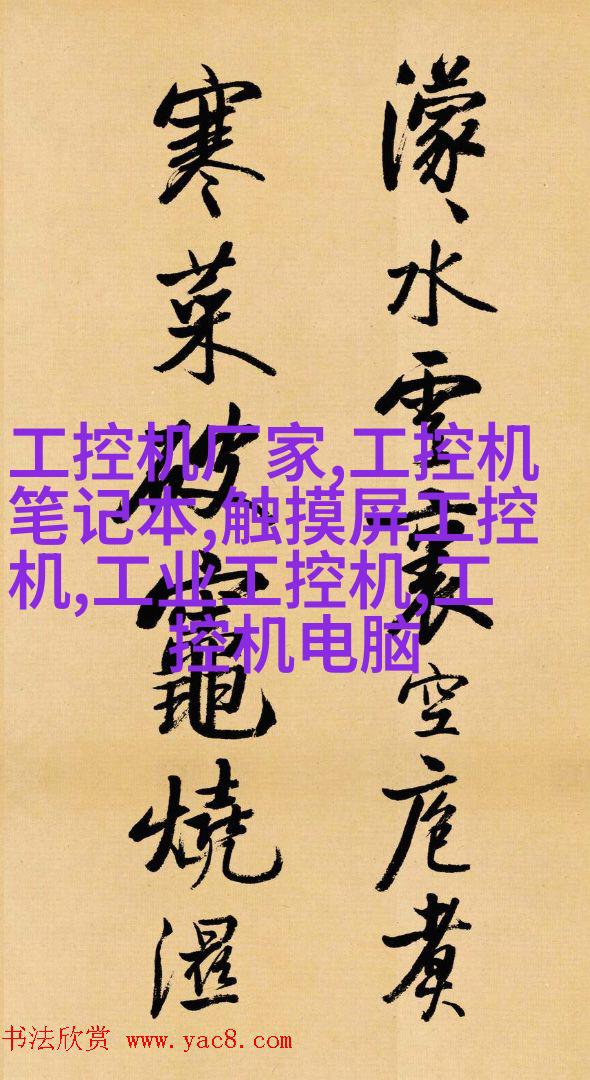 濛〻水雲裏空庖煮
寒菜破竈燒濕
工控机厂家,工控机
笔记本,触摸屏工控
机,工业工控机,工
控机电脑
书法欣赏 www.yac8.com